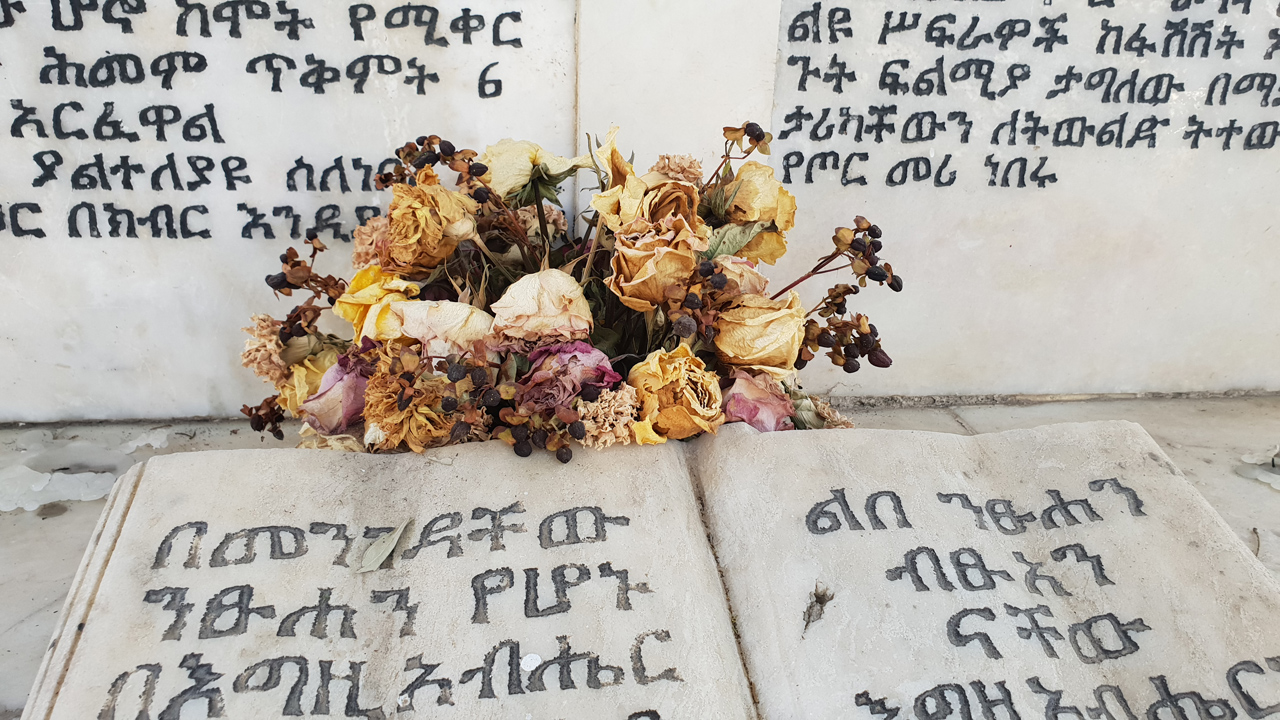 ሆኖ ከሞት የሚቀር
ሕመም ጥቅምት 6
አርፈዋል
ያልተለያዩ
በክብር
ልዩ ሥፍራዎች ከፋሽሽት
ጉት ፍልሚያ ታግለው
ታሪካቸውን ለትውልድ
የጦር መሪ ነበሩ
በመንገዳቸው
ንፁሐን የሆኑ
በእግዚ አብሔር
ልበ ንፁሐን
ብፁአን
ናቸው
እግዚአብሔርን